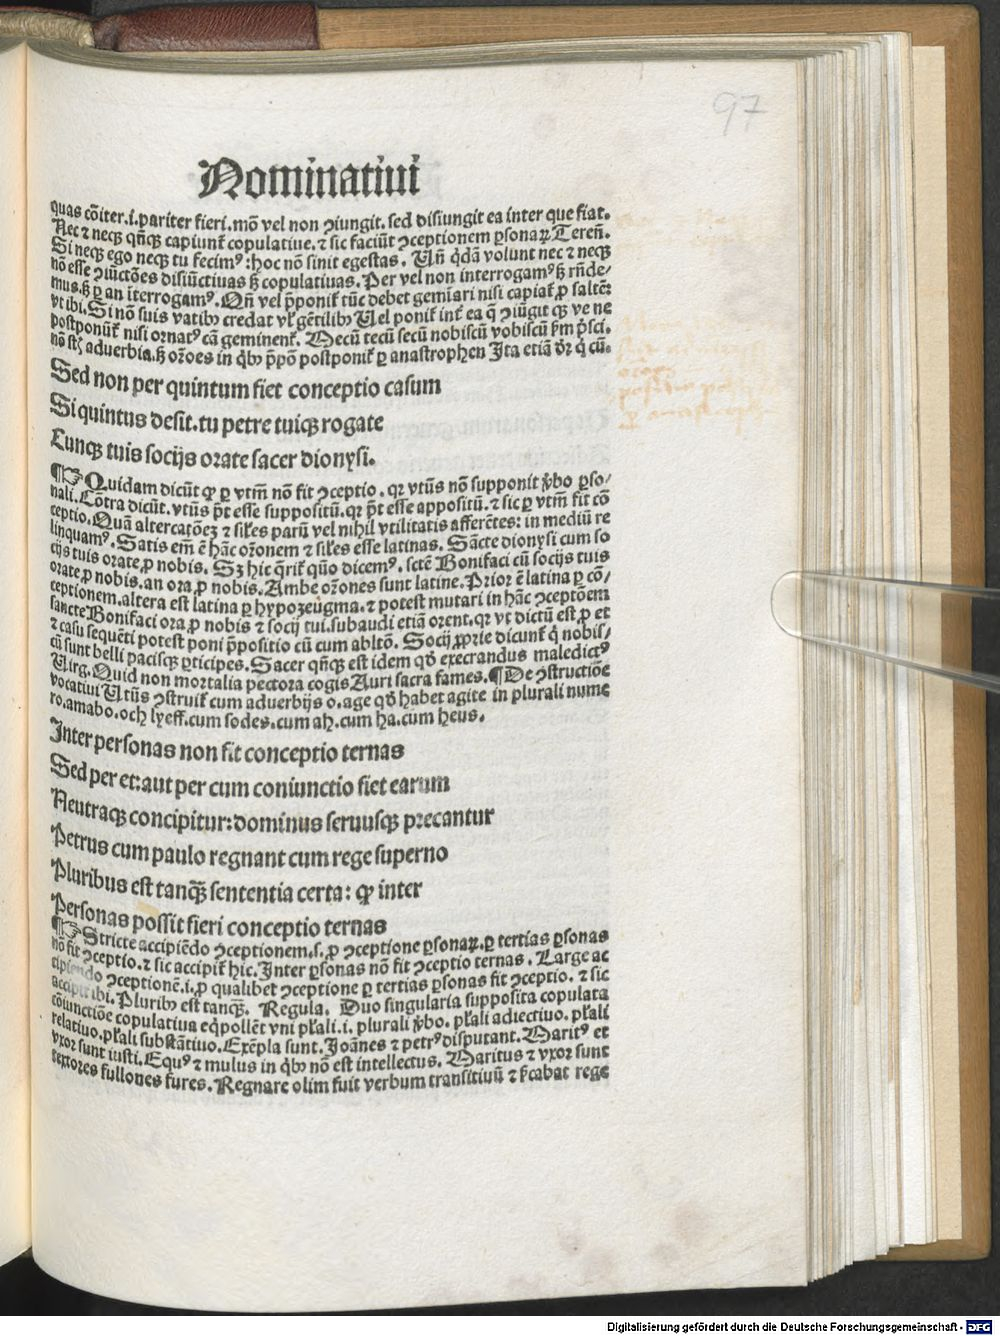 97
Nominatiui
quas cōiter.i.pariter fieri.mō vel non ꝯiungit.sed disiungit ea inter que fiat.
Nec ⁊ neqꝫ qn̄qꝫ capiunt̉ copulatiue.⁊ sic faciūt ꝯceptionem ꝑsonaꝝ Teren̄.
Si neqꝫ ego neqꝫ tu fecimꝰ:hoc nō sinit egestas. Un̄ q̇dā volunt nec ⁊ neqꝫ
nō esse ꝯiūctōes disiūctiuas sꝫ copulatiuas. Per vel non interrogamꝰ sꝫ rn̄de/
mus.sꝫ ꝑ an īterrogamꝰ. Qn̄ vel p̄ponit̉ tūc debet gemīari nisi capiat̉ ꝓ saltē:
vt ibi. Si nō suis vatibꝫ credat vl̓ gētilibꝫ Uel ponit̉ int̉ ea q̄ ꝯiūgit qꝫ ve ne
postponūt̉ nisi ornatꝰ cā geminent̉. Mecū tecū secū nobiscū vobiscū ẜm p̓sci.
nō st̄ aduerbia.sꝫ or̄oes in q̇bꝫ p̄pō postponit̉ ꝑ anastrophen Ita etiā dr̄ q̄ cū.
Sed non per quintum fiet conceptio casum
Si quintus desit.tu petre tuiqꝫ rogate
Cunqꝫ tuis socijs orate sacer dionysi.
¶☞Quidam dicūt ꝙ ꝑ vtm̄ nō fit ꝯceptio.qꝛ vtūs nō supponit v̓bo ꝑso/
nali.Cōtra dicūt.vtūs p̄t esse suppositū.qꝛ p̄t esse appositū.⁊ sic ꝑ vtm̄ fit cō
ceptio.Quā altercatōeꝫ ⁊ sil̓es parū vel nihil vtilitatis afferētes: in mediū re
linquamꝰ. Satis em̄ ē hāc or̄onem ⁊ sil̓es esse latinas. Sācte dionysi cum so
cijs tuis orate ꝓ nobis. Sꝫ hic q̄rit̉ quō dicemꝰ. sctē Bonifaci cū socijs tuis
orate ꝓ nobis.an ora ꝓ nobis. Ambe or̄ones sunt latine.Prior ē latina ꝑ cō/
ceptionem.altera est latina ꝑ hypozeugma.⁊ potest mutari in hāc ꝯceptōem
sancte Bonifaci ora ꝓ nobis ⁊ socij tui.subaudi etiā orent.qꝛ vt dictū est ꝓ et
⁊ casu sequēti potest poni p̄positio cū cum ablt̄o. Socij ꝓprie dicunt̉ q̇ nobis/
cū sunt belli pacisqꝫ ꝑticipes. Sacer qn̄qꝫ est idem qd̓ execrandus maledictꝰ
Uirg. Quid non mortalia pectora cogis Auri sacra fames.¶De ꝯstructiōe
vocatiui Utūs ꝯstruit̉ cum aduerbijs o.age qd̓ habet agite in plurali nume
ro.amabo.och lyeff.cum sodes.cum ah.cum ha.cum heus.
Inter personas non fit conceptio ternas
Sed per et:aut per cum coniunctio fiet earum
Neutraqꝫ concipitur:dominus seruusqꝫ precantur
Petrus cum paulo regnant cum rege superno
Pluribus est tanqꝫ sententia certa: ꝙ inter
Personas possit fieri conceptio ternas
¶☞Stricte accipiēdo ꝯceptionem.s.ꝓ ꝯceptione ꝑsonaꝝ.ꝑ tertias ꝑsonas
nō fit ꝯceptio.⁊ sic accipit̉ hic.Inter ꝑsonas nō fit ꝯceptio ternas. Large ac
cipiendo ꝯceptionē.i.ꝓ qualibet ꝯceptione ꝑ tertias ꝑsonas fit ꝯceptio. ⁊ sic
accipit̉ ibi.Pluribꝫ est tanqꝫ. Regula. Duo singularia supposita copulata
cōiunctiōe copulatiua eq̇pollēt vni pl̓ali.i. plurali v̓bo. pl̓ali adiectiuo. pl̓ali
relatiuo.pl̓ali substātiuo.Exēpla sunt. Joānes ⁊ petrꝰ disputant. Maritꝰ et
vxor sunt iusti.Equꝰ ⁊ mulus in q̇bꝫ nō est intellectus. Maritus ⁊ vxor sunt
textores fullones fures. Regnare olim fuit verbum transitiuū ⁊ ẜcabat rege
Digitalisierung gefördert durch die Deutsche Forschungsgemeinschaft - DFG